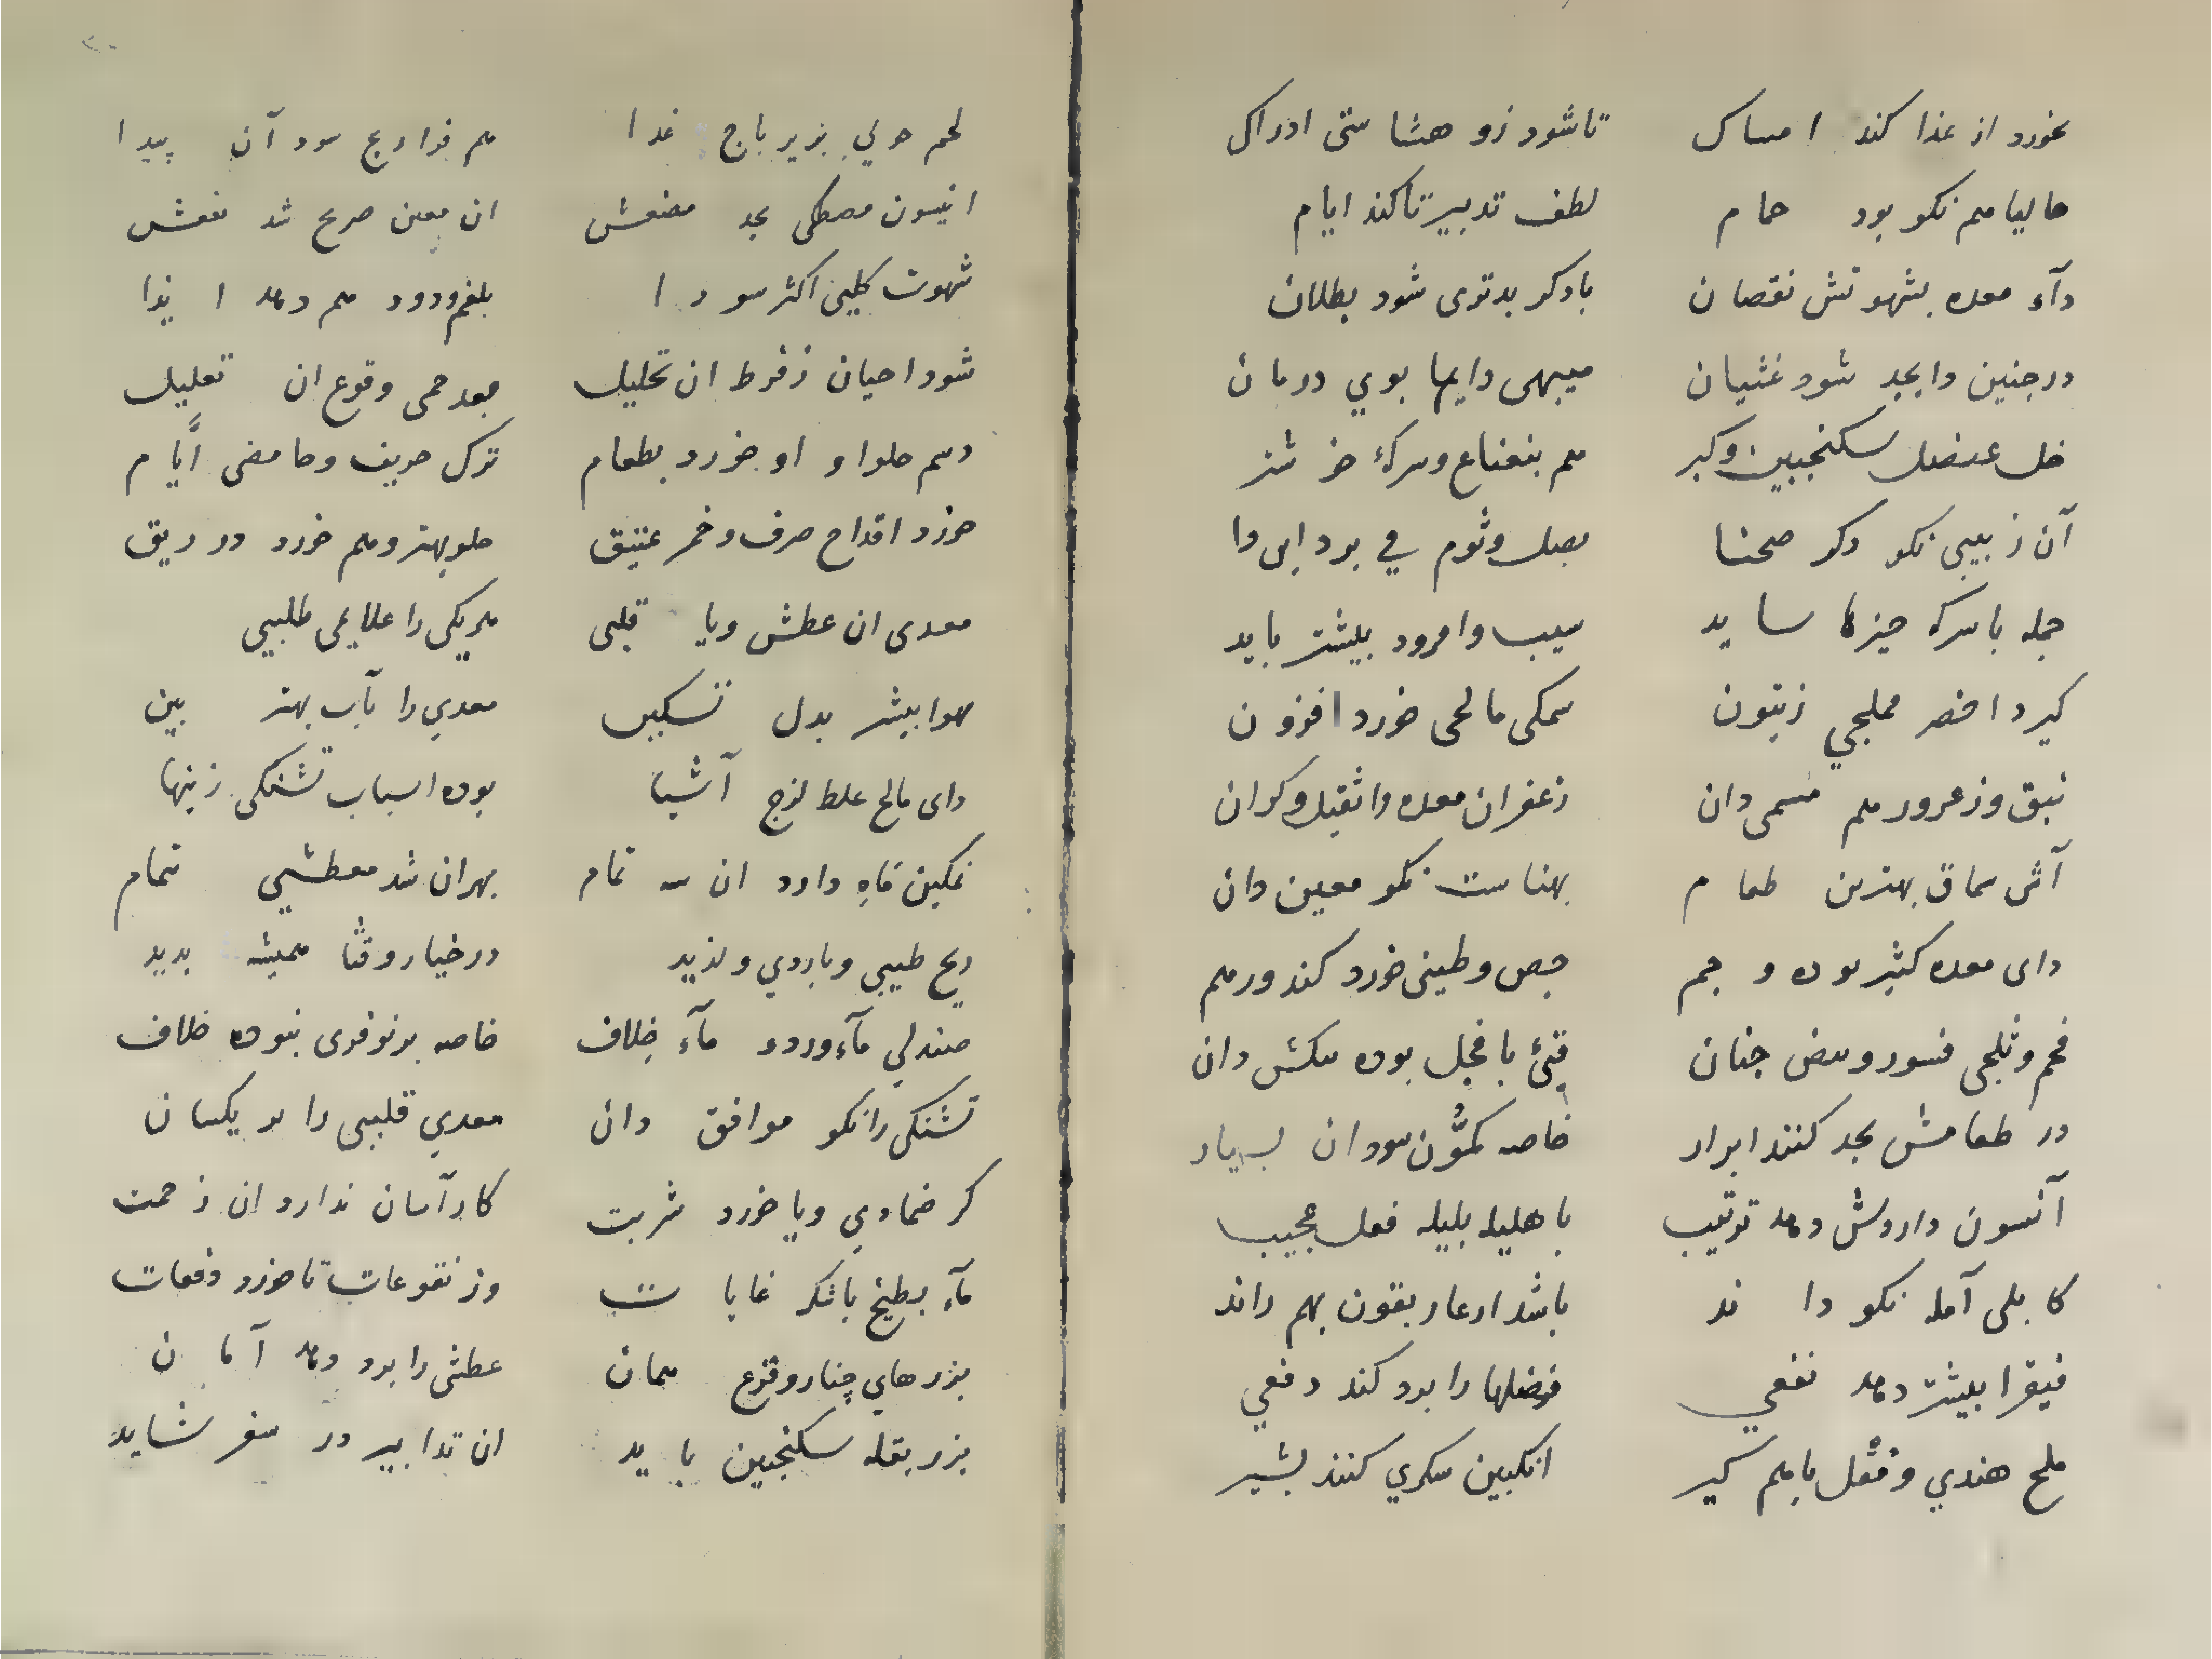 نخورد از غذا کند امساک تا شود زو هشاستی ادراک
حالیا هم نکو بود حمام لطف تدبیر تا کند ایام
دآء معده بشهوتش نقصان بادکر بدتری شود بطلان
در چنین دا بجد شود غثیان میبهی دایما بوی درمان
خل عنصل سکنجبین وکبر هم بنعناع وسرکه خوشتر
آن زبیبی نکو دکر صحنا بصل وثوم فی برد این دا
جمله با سرکه چیزها ساید سیب وامرود بیشتر باید
کیرد اخضر مملحی زیتون سمکی مالحی خورد افزون
نبق وزعرور هم مسمی دان زعفران معده را ثقیل وکران
آش سماق بهترین طعام بهناست نکو معین دان
دای معده کثیر بوده وجم جص وطینی خورد کند ورهم
فحم وثلجی قسور وبیض چنان قیئ با فجل بوده سکنش دان
در طعامش بجد کنند ابراد خاصه کمون سود ان بسیار
آنسون داروش دهد ترتیب با هلیله بلیله فعل عجیب
کابلی آمله نکو داند باشد ارعاریقون بهم راند
فیقرا بیشتر دهد نفعی فضلها را برد کند دفعی
ملح هندی ومقل با هم کیر انکبین سکری کنند بشیر
لحم حولی بزیرباج غدا هم فراریج سود آن پیدا
انیسون مصطکی بجد مضغش ان معین صریح شد نفعش
شهوت کلبی اکثر سودا بلغم ودود هم دهد ایذا
شود احیان زفرط ان تحلیل بعد حمی وقوع ان تعلیل
دسم حلوا و او خورد بطعام ترک حریف وحامضی ایام
خورد اقداح صرف وخمر عتیق حلو بهتر وهم خورد در ریق
معدی ان عطش ویا قلبی هر یکی را علایمی طلبی
بهوا بیشتر بدل تسکین معدی را بآب بهتر بین
دای مالح غلط لزج آشیا بوده اسباب تشنکی زینها
نمکین ماه دارد ان سه تمام بهر ان شد معطشی تمام
ریح طیبی وباردی ولذید در خیار وقثا همیشه بدید
صندلی مآء ورد و مآء خلاف خاصه برنوفری بنوده خلاف
تشنکی را نکو موافق دان معدی قلبیی را بد یکسان
کر ضمادی ویا خورد شربت کار آسان ندارد ان زحمت
مآء بطیخ باشکر غایات وز نقوعات تا خورد دفعات
بزرهای چنار وقرع همان عطش را برد دهد آمان
بزر بقله سکنجبین باید ان تدابیر در سفر شاید